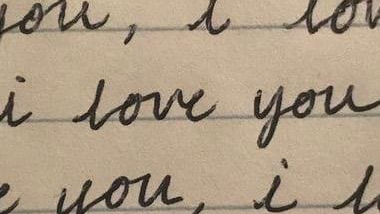 you, i lov
i love you
e you, i l